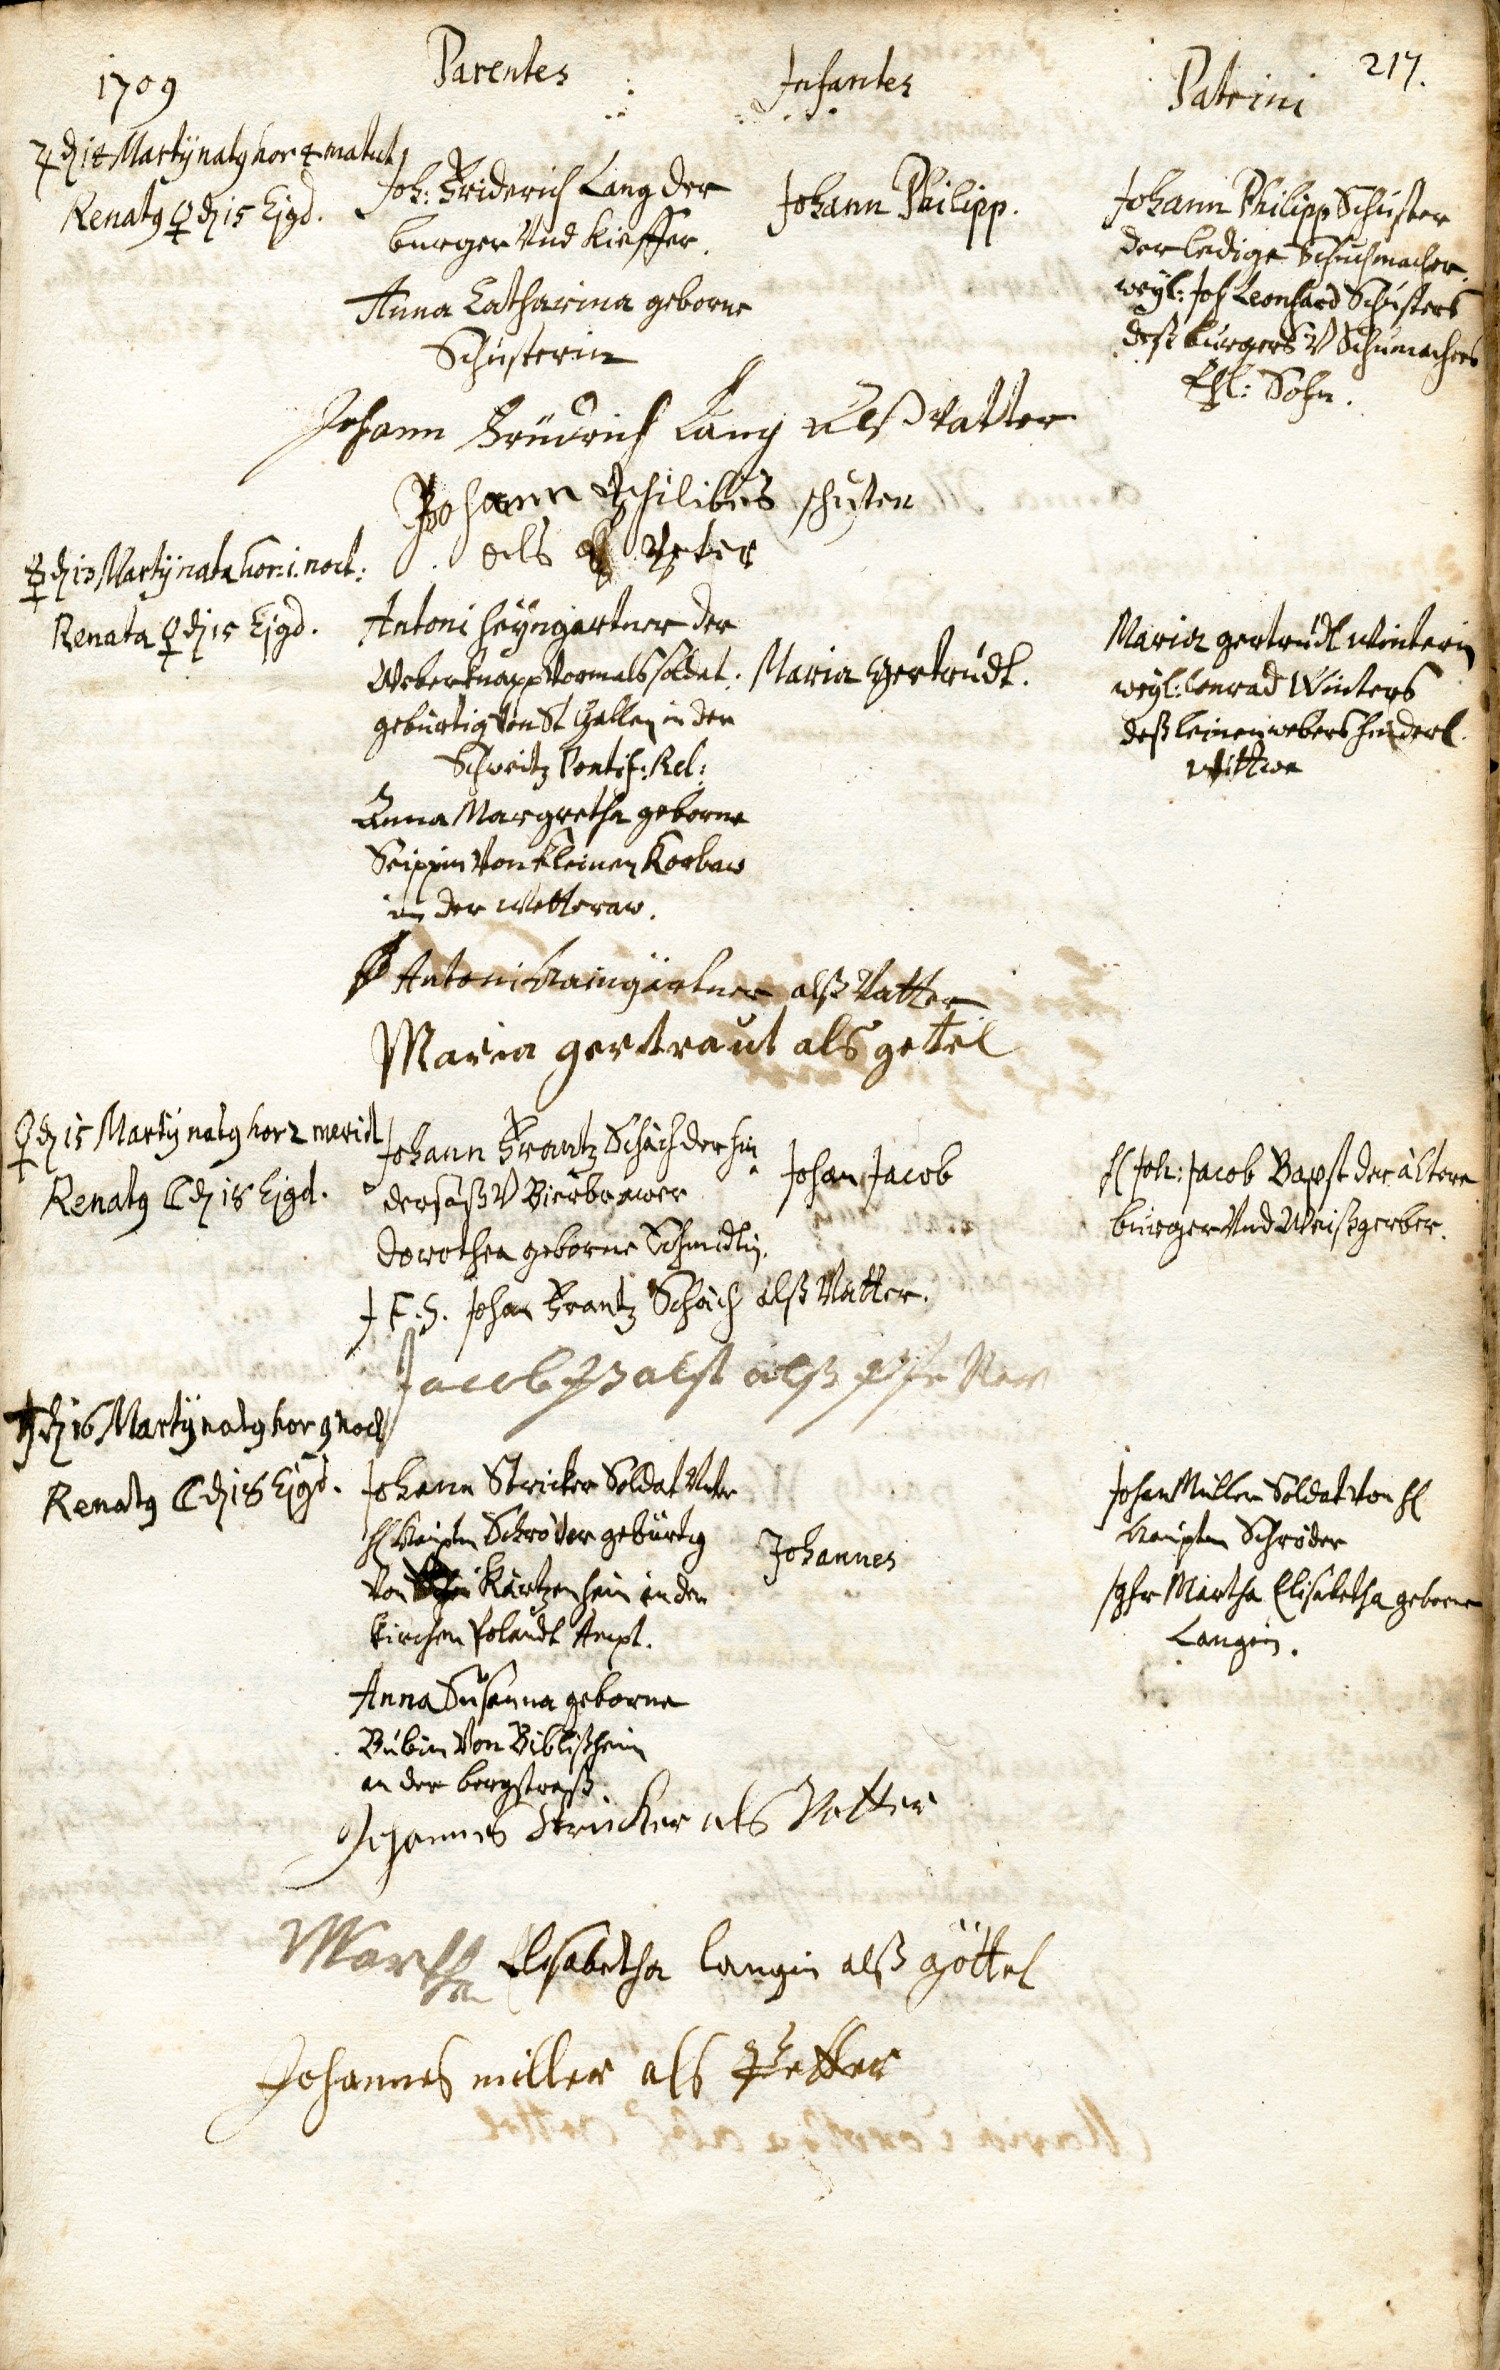 1709
Parentes
Infantes
Patrini
217.
♃ dj 14 Martij natq hor 4 matut
Renatq ♀ dj 15 Ejqd.
Joh: Friderich Lang der
burger Vnd Kieffer.
Anna Catharina geborne
Schusterin
Johann Philipp.
Johann Philipp Schuster
der ledige Schuchmacher.
weyl: Joh Leonhard Schusters
deß burgers V Schumachers
Ehl: Sohn.
Johann Lang alß Vatter
Johann
als Peter
☿ dj 13 Martij nata hor: 1. noct:
Renata ♀ dj 15 Ejqd.
Antoni Heyngartner der
Weberknapp Vormals Soldat.
gebürtig Von St Gallen in der
Schweitz Pontif: Rel:
Anna Margretha geborne
Seippin Von kleinen Korbaw
in der Wetteraw.
Maria Gertrudt.
Maria gertrudt Winterin
weyl: Conrad Winters
deß leinenwebers hinderl.
Wittwe
Antoni Haingärtner alß Vatter
Maria gertraut als getel
♀ dj 15 Martij natq hor 2 merid
Renatq ☾ dj 18 Ejqd.
Johann Frantz Schäch der hin
dersäß V Bierbrawer
Dorothea geborne Schmidtin.
Johan Jacob
H Joh: Jacob Bapst der ältere
burger Vnd Weißgerber.
J F. S. Johan Frantz Schäch alß Vatter.
Jacob alß
♄ dj 16 Martij natq hor 9 noct
Renatq ☾ dj 18 Ejqd.
Johann Stricker Soldat Vnter
H Hauptm Schröder gebürtig
Von Kärtzenhein in den
Kirchen Polandt Ampt.
Anna Susanna geborne
Bubin Von Biblißheim
an der bergstraß
Johannes
Johan Müller Soldat Von H
Hauptm Schröder
Martha Elisabetha geborne
Langin.
Johannes Stricker als Vatter
Martha Elisabetha Langin alß göttel
Johannes miller als Petter